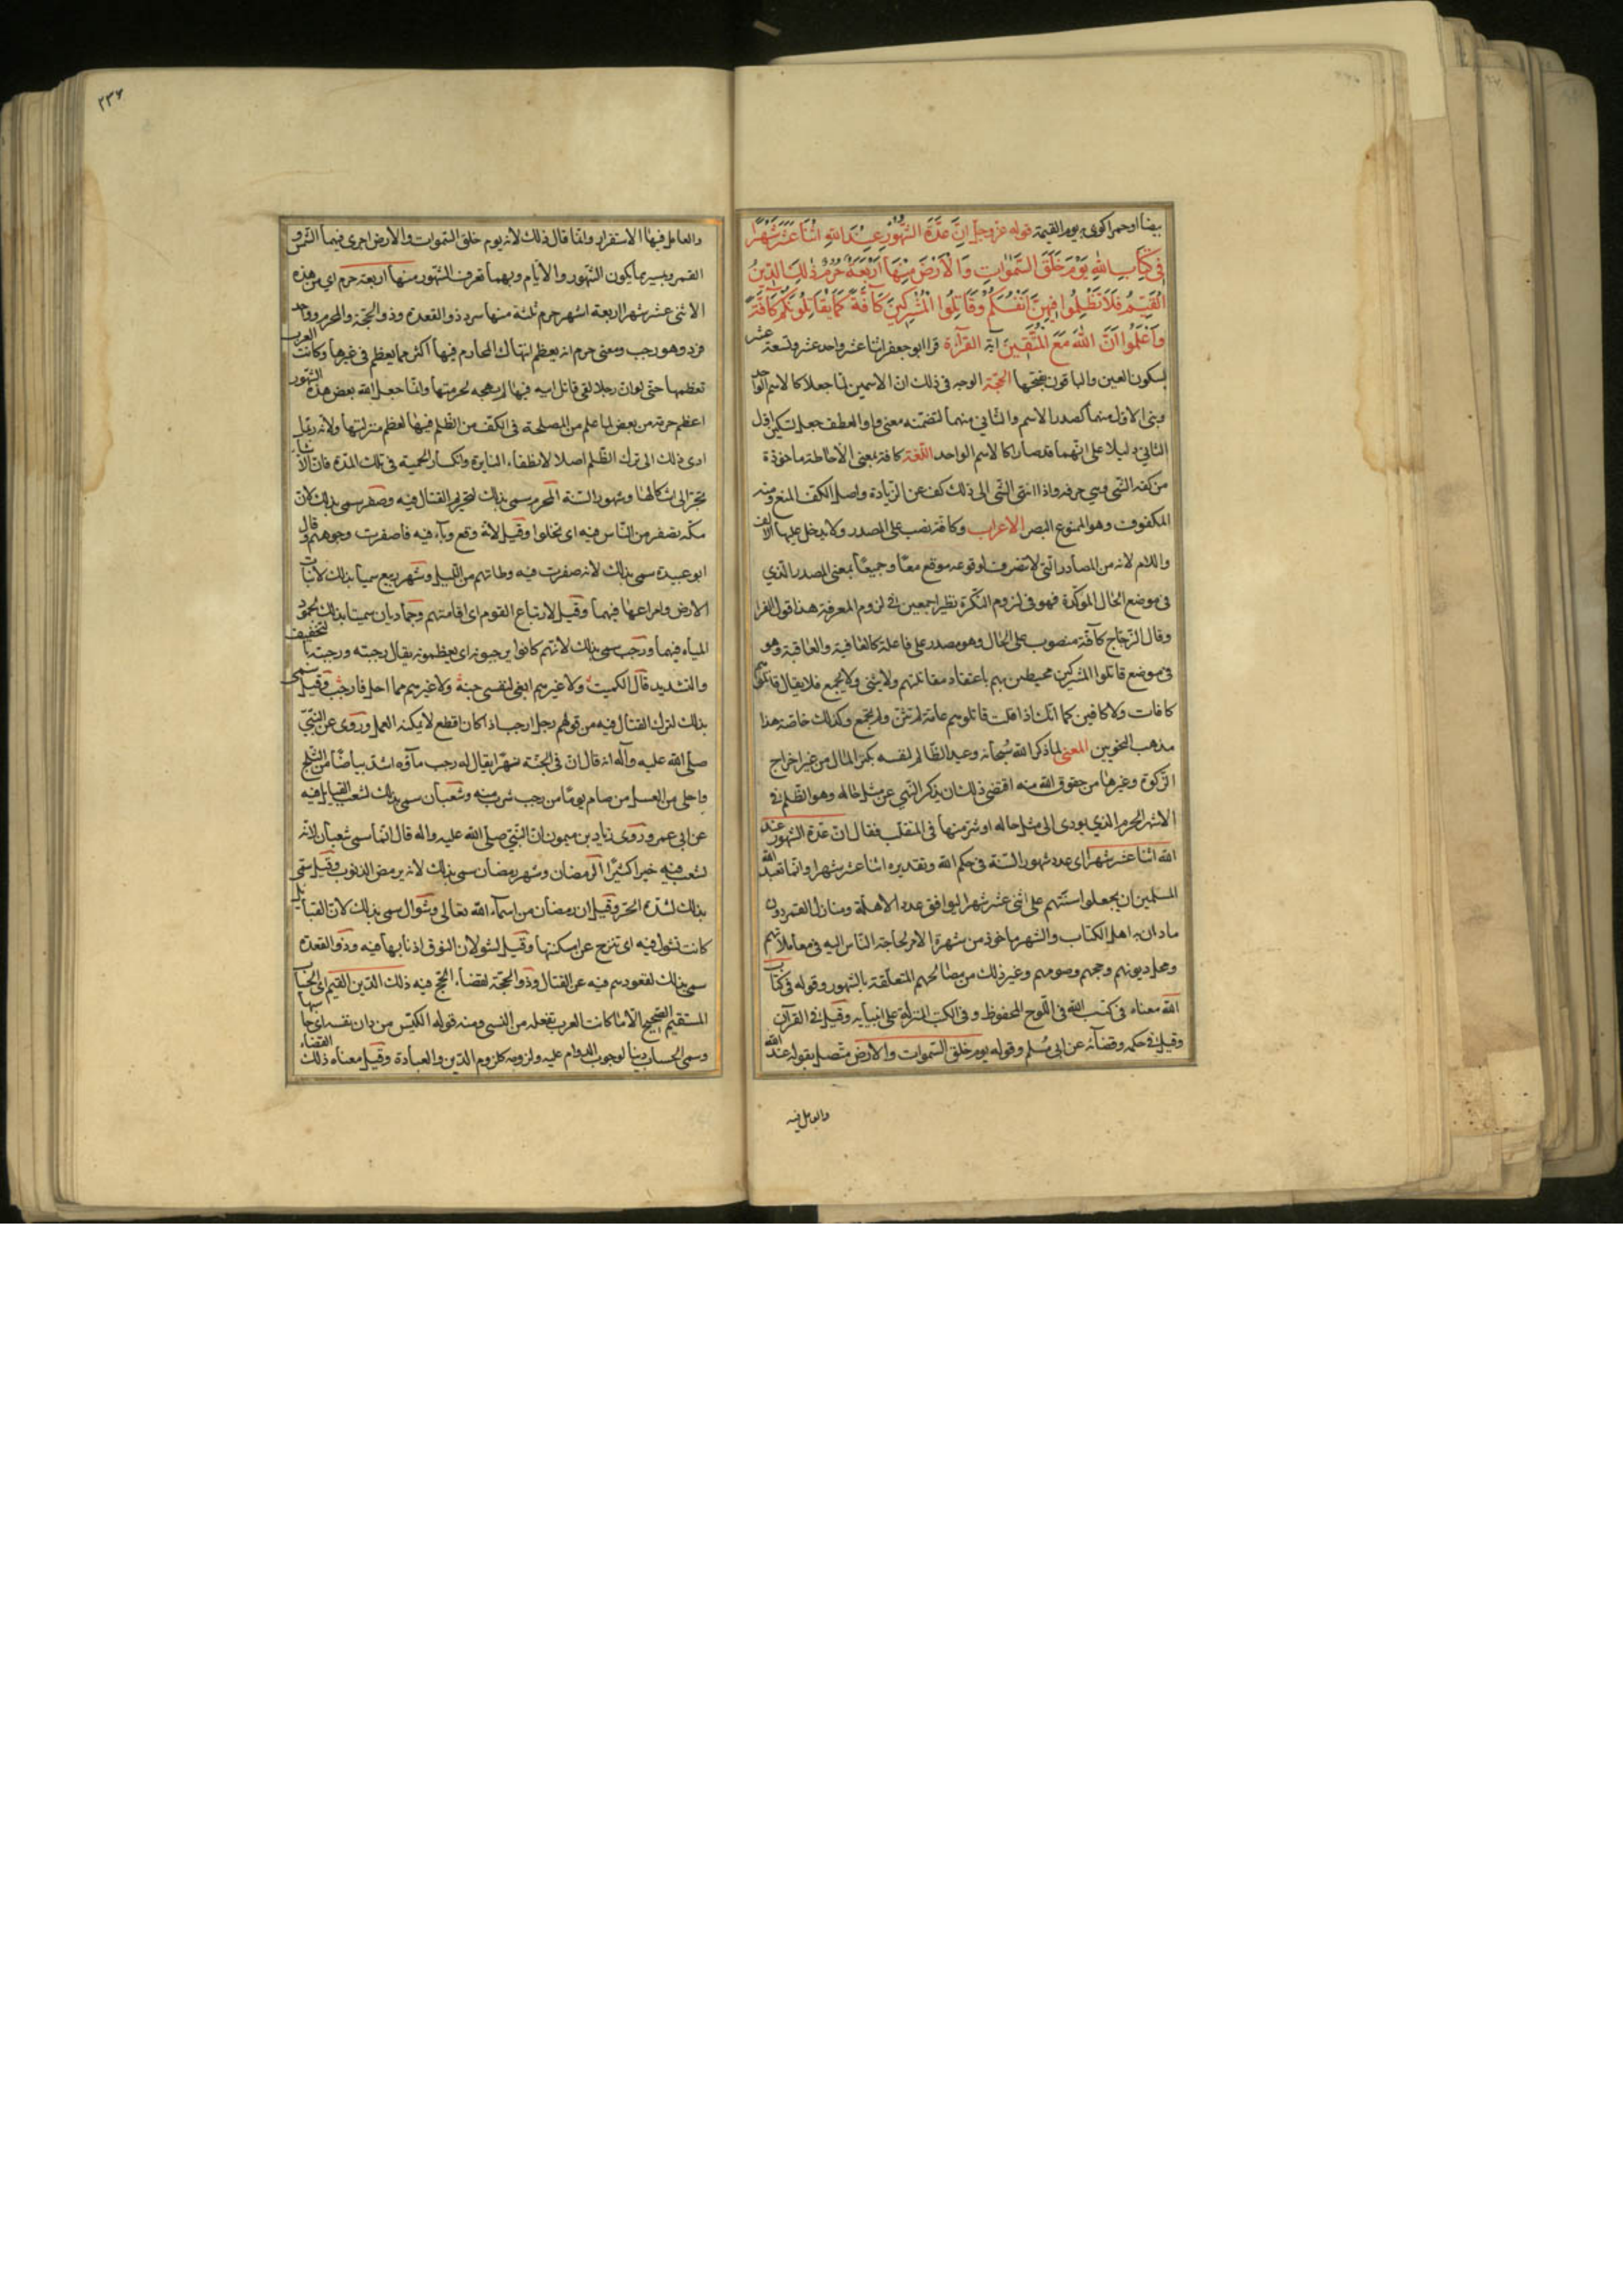 بيضا او حمرا كوى به يوم القيمة قوله عز وجل اِنَّ عِدَّةَ الشُّهُوْرِ عِنْدَ اللهِ اثْنَا عَشَرَ شَهْرًا
فِي كِتَابِ اللهِ يَوْمَ خَلَقَ السَّمٰوَاتِ وَالْاَرْضَ مِنْهَا اَرْبَعَةٌ حُرُمٌ ذٰلِكَ الدِّيْنُ
الْقَيِّمُ فَلَا تَظْلِمُوا فِيْهِنَّ اَنْفُسَكُمْ وَقَاتِلُوا الْمُشْرِكِيْنَ كَآفَّةً كَمَا يُقَاتِلُوْنَكُمْ كَآفَّةً
وَاعْلَمُوا اَنَّ اللهَ مَعَ الْمُتَّقِيْنَ اية القرآءة قرا ابو جعفر اثنا عشر واحد عشر وتسعة عشر
بسكون العين والباقون بفتحها الحجة الوجه فى ذلك ان الاسمين لما جعلا كالاسم الواحد
وبنى الاول منهما كصدر الاسم والثاني منهما لتضمنه معنى واو العطف جعل تسكين اول
الثاني دليلا على انهما قد صارا كالاسم الواحد اللغة كافة بمعنى الاحاطة ماخوذة
من كفة الشى وهي حرفه واذا انتهى الشى الى ذلك كف عن الزيادة واصل الكف المنع ومنه
المكفوف وهو الممنوع البصر الاعراب وكافة نصب على المصدر ولا يدخل عليها الالف
واللام لانه من المصادر التى لا تتصرف لوقوعه موقع معًا وجميعًا بمعنى المصدر الذي
فى موضع الحال الموكدة فهو فى لزوم النكرة نظير اجمعين فى لزوم المعرفة هذا قول الفرا
وقال الزجاج كآفة منصوب على الحال وهو مصدر على فاعلة كالعافية والعاقبة وهو
فى موضع قاتلوا المشركين محيطين بهم باعتقاد مقاتلتهم ولا يثنى ولا يجمع فلا يقال قاتلوهم
كافات ولا كافين كما انك اذا قلت قاتلوهم عامة لم تثن ولم تجمع وكذلك خاصة هذا
مذهب النحويين المعنى لما ذكر الله سبحانه وعيد الظالم لنفسه بكنز المال من غير اخراج
الزكوة وغيرها من حقوق الله منه اقتضى ذلك ان يذكر النهي عن مثل حاله وهو الظلم فى
الاشهر الحرم الذي يودى الى مثل حاله او شر منها فى المنقلب فقال ان عدة الشهور عند
الله اثنا عشر شهرا اى عدد شهور السنة فى حكم الله وتقديره اثنا عشر شهرا وانما تعبد الله
المسلمين ان يجعلوا سنتهم على اثنى عشر شهرا ليوافق عدد الاهلة ومنازل القمر دون
ما دان به اهل الكتاب والشهر ماخوذ من شهرة الامر لحاجة الناس اليه فى معاملاتهم
ومحل ديونهم وحجهم وصومهم وغير ذلك من مصالحهم المتعلقة بالشهور وقوله فى كتاب
الله معناه فى كتب الله فى اللوح المحفوظ وفى الكتب المنزلة على انبيايه وقيل فى القرآن
وقيل فى حكمه وقضآئه عن ابى مسلم وقوله يوم خلق السموات والارض متصل بقوله عند الله
والعامل فيه
٢٣٧
والعامل فيها الاستقرار وانما قال ذلك لانه يوم خلق السموات والارض اجرى فيهما الشمس و
القمر وبسيرهما يكون الشهور والايام وبهما تعرف الشهور منها اربعة حرم اي من هذه
الاثنى عشر شهرا اربعة اشهر حرم ثلثة منها سرد ذو القعدة وذو الحجة والمحرم وواحد
فرد وهو رجب ومعنى حرم انه يعظم انتهاك المحارم فيها اكثر مما يعظم فى غيرها وكانت العرب
تعظمها حتى لو ان رجلا لقى قاتل ابيه فيها لم يهجه لحرمتها وانما جعل الله بعض هذه الشهور
اعظم حرمة من بعض لما علم من المصلحة فى الكف من الظلم فيها لعظم منزلتها ولانه ربما
ادى ذلك الى ترك الظلم اصلا لانطفاء النايرة وانكسار الحمية فى تلك المدة فان الاشياء
تجر الى اشكالها وشهور السنة المحرم سمى بذلك لتحريم القتال فيه وصفر سمى بذلك لان
مكة تصفر من الناس فيه اى تخلوا وقيل لانه وقع وبآء فيه فاصفرت وجوههم وقال
ابو عبيدة سمى بذلك لانه صفرت فيه وطابهم من اللبن وشهر ربيع سميا بذلك لانبات
الارض وامراعها فيهما وقيل لارتباع القوم اى اقامتهم وجماديان سميتا بذلك لجمود
المياه فيهما ورجب سمى بذلك لانهم كانوا يرجبونه اى يعظمونه يقال رجبته ورجبته بالتخفيف
والتشديد قال الكميت ولا غيرهم ابغى لنفسى جنة ولا غيرهم مما اجل فارجب وقيل سمى
بذلك لترك القتال فيه من قولهم رجل ارجب اذا كان اقطع لا يمكنه العمل وروى عن النبيّ
صلى الله عليه وآله انه قال ان فى الجنة نهرا يقال له رجب مآؤه اشد بياضًا من الثلج
واحلى من العسل من صام يومًا من رجب شرب منه وشعبان سمى بذلك لتشعب القبايل فيه
عن ابى عمرو وروى زياد بن ميمون ان النبيّ صلى الله عليه واله قال انما سمى شعبان لانه
تشعب فيه خيرا كثيرًا لرمضان وشهر رمضان سمى بذلك لانه يرمض الذنوب وقيل سمى
بذلك لشدة الحر وقيل ان رمضان من اسمآء الله تعالى وشوال سمى بذلك لان القبايل
كانت تشول فيه اى تنزح عن امكنتها وقيل لشولان النوق اذنابها فيه وذو القعدة
سمى بذلك لقعودهم فيه عن القتال وذو الحجة لقضاء الحج فيه ذلك الدين القيم اى الحساب
المستقيم الصحيح لا ما كانت العرب تفعله من النسى ومنه قوله الكيس من دان نفسه اى حاسبها
وسمى الحساب دينا لوجوب الدوام عليه ولزومه كلزوم الدين والعبادة وقيل معناه ذلك القضاء